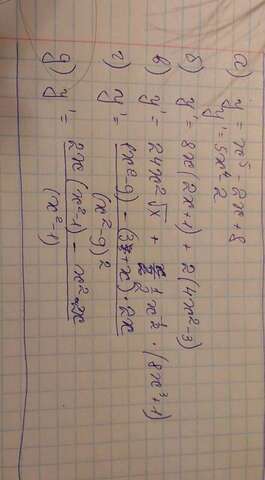 а) y = x⁵ 2x + 8
y' = 5x⁴ - 2
б) y' = 8x (2x+1) + 2(4x² - 3)
в) y' = 24x² √x + 1/2 x^(1/2) · (8x³ + 1)
г) y' = ((x² - 9) - (3 + x) · 2x) / (x² - 9)²
д) y' = (2x (x² - 1) - x² · 2x) / (x² - 1)